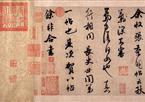 余收張季明帖云
秋氣深不審氣力
復何如也真
行相間長史世間第
一帖也其次賀八帖
餘非合書